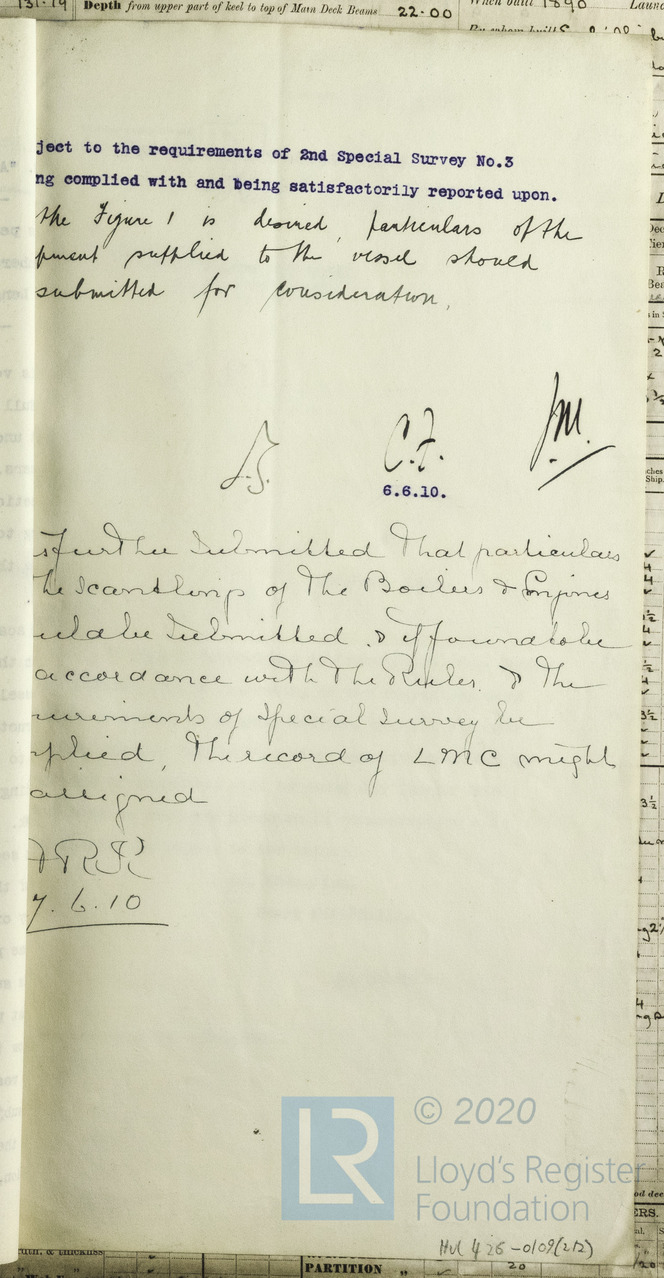 131.19 Depth from upper part of keel to top of Main Deck Beams 22.00 When built 1890 Launc
ject to the requirements of 2nd Special Survey No.3
ng complied with and being satisfactorily reported upon.
the Figure 1 is desired, particulars of the
pment supplied to the vessel should
submitted for consideration.
J.S. C.F. J.M.
6.6.10.
s further submitted that particulars
he scantlings of the Boilers & Engines
uld be submitted & if found to be
accordance with the Rules & the
uirements of Special Survey be
plied, the record of LMC might
assigned
7.6.10
© 2020
LR Lloyd's Register
Foundation
Hul 426-0109(2/2)
PARTITION " 20